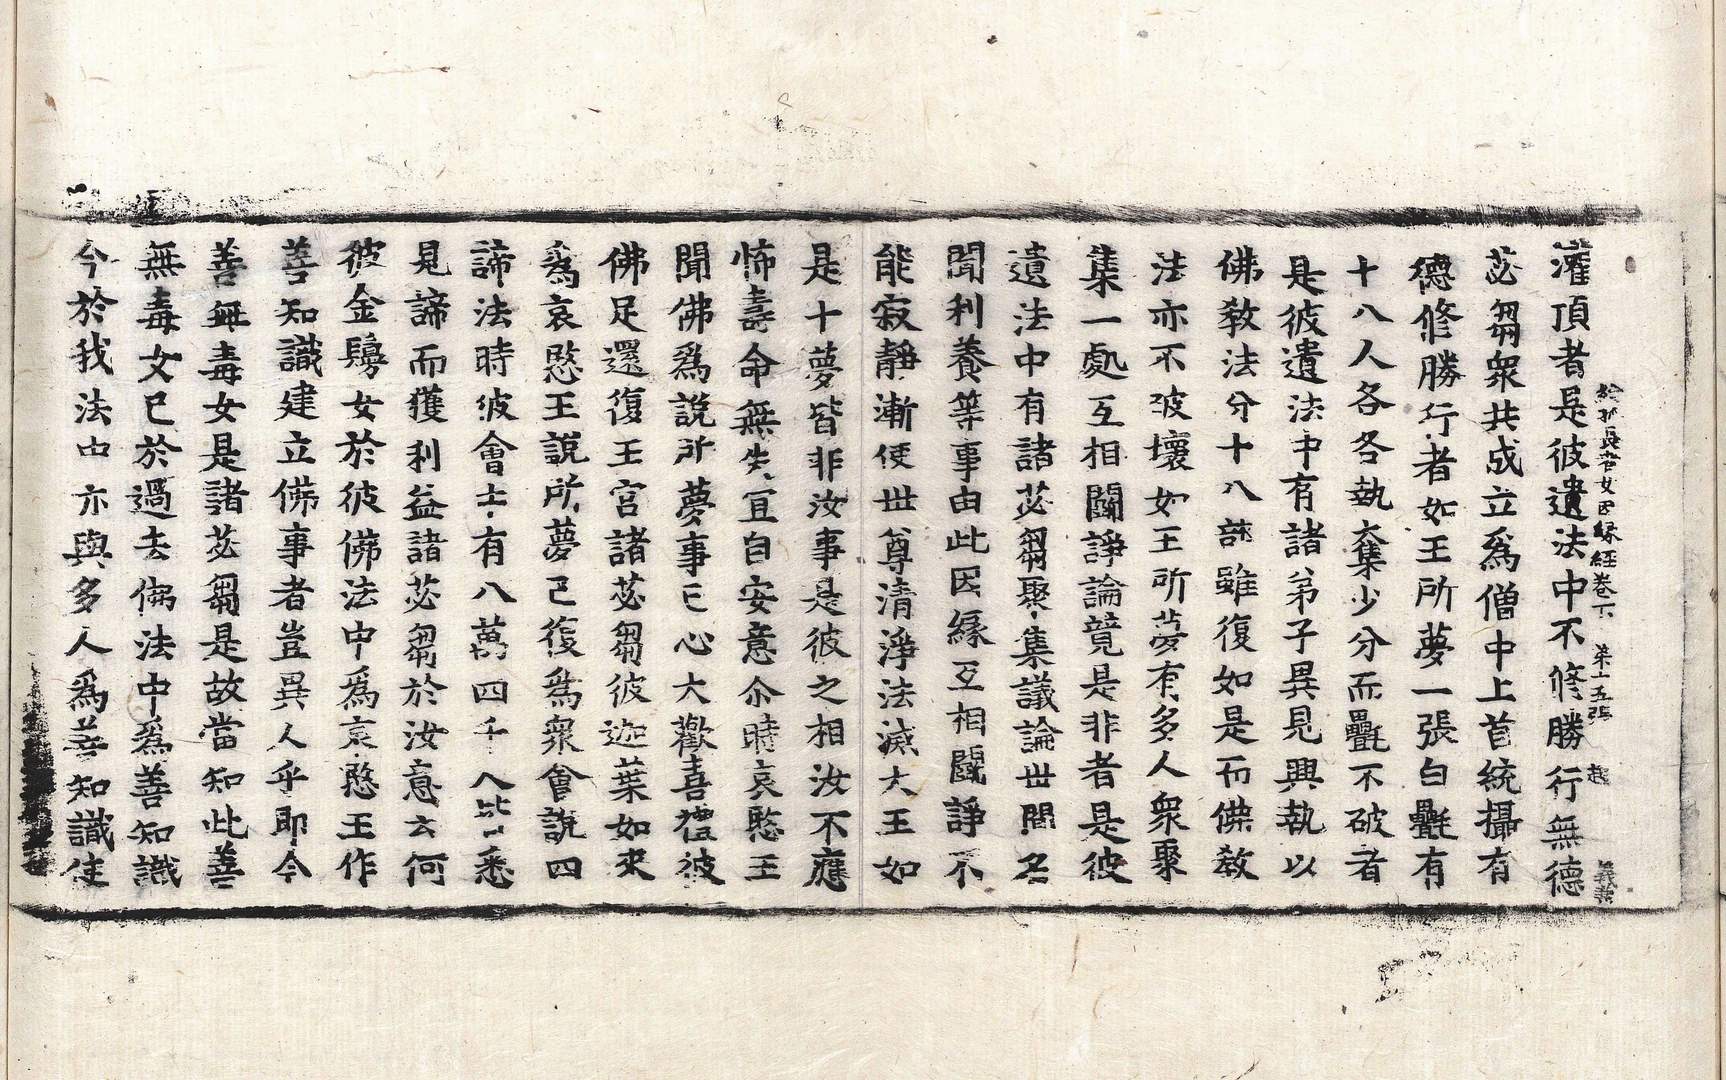 給孤長者女因緣經卷下 第十五張 起 義兼
灌頂者是彼遺法中不修勝行無德
苾芻衆共成立爲僧中上首統攝有
德修勝行者如王所夢一張白㲲有
十八人各各執奪少分而㲲不破者
是彼遺法中有諸弟子異見興執以
佛教法分十八部雖復如是而佛教
法亦不破壞如王所夢有多人衆聚
集一處互相鬪諍論竟是非者是彼
遺法中有諸苾芻聚集議論世間名
聞利養等事由此因緣互相鬪諍不
能寂靜漸使世尊清淨法滅大王如
是十夢皆非汝事是彼之相汝不應
怖壽命無失宜自安意尒時哀愍王
聞佛爲說所夢事已心大歡喜禮彼
佛足還復王宮諸苾芻彼迦葉如來
爲哀愍王說所夢已復爲衆會說四
諦法時彼會士有八萬四千人比丘悉
見諦而獲利益諸苾芻於汝意云何
彼金鬘女於彼佛法中爲哀愍王作
善知識建立佛事者豈異人乎即今
善無毒女是諸苾芻是故當知此善
無毒女已於過去佛法中爲善知識
今於我法中亦與多人爲善知識住